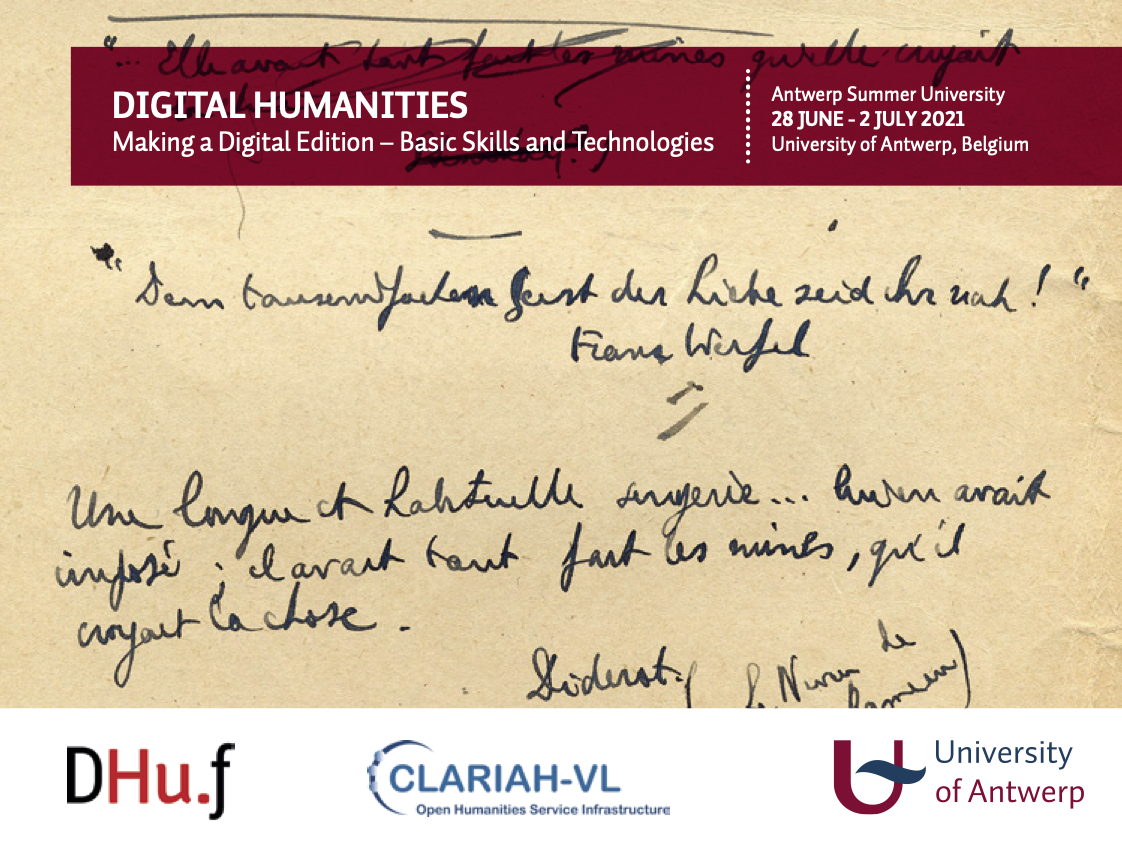 "... Elle avait tant fait les mines qu'elle croyait
DIGITAL HUMANITIES
Making a Digital Edition – Basic Skills and Technologies
Antwerp Summer University
28 JUNE - 2 JULY 2021
University of Antwerp, Belgium
"Dem tausendfachen Geist der Liebe seid ihr nah! "
Franz Werfel
Une longue et habituelle singerie... lui en avait
imposé ; il avait tant fait les mines, qu'il
croyait la chose.
Diderot. (Le Neveu de
Rameau)
DHu.f
CLARIAH-VL
Open Humanities Service Infrastructure
University
of Antwerp